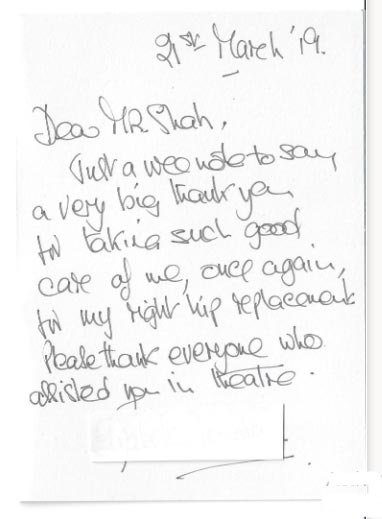 21st March '19.
Dear MR. Shah,
Just a wee note to say
a very big thank you
for taking such good
care of me, once again,
for my right hip replacement
Please thank everyone who
assisted you in theatre.